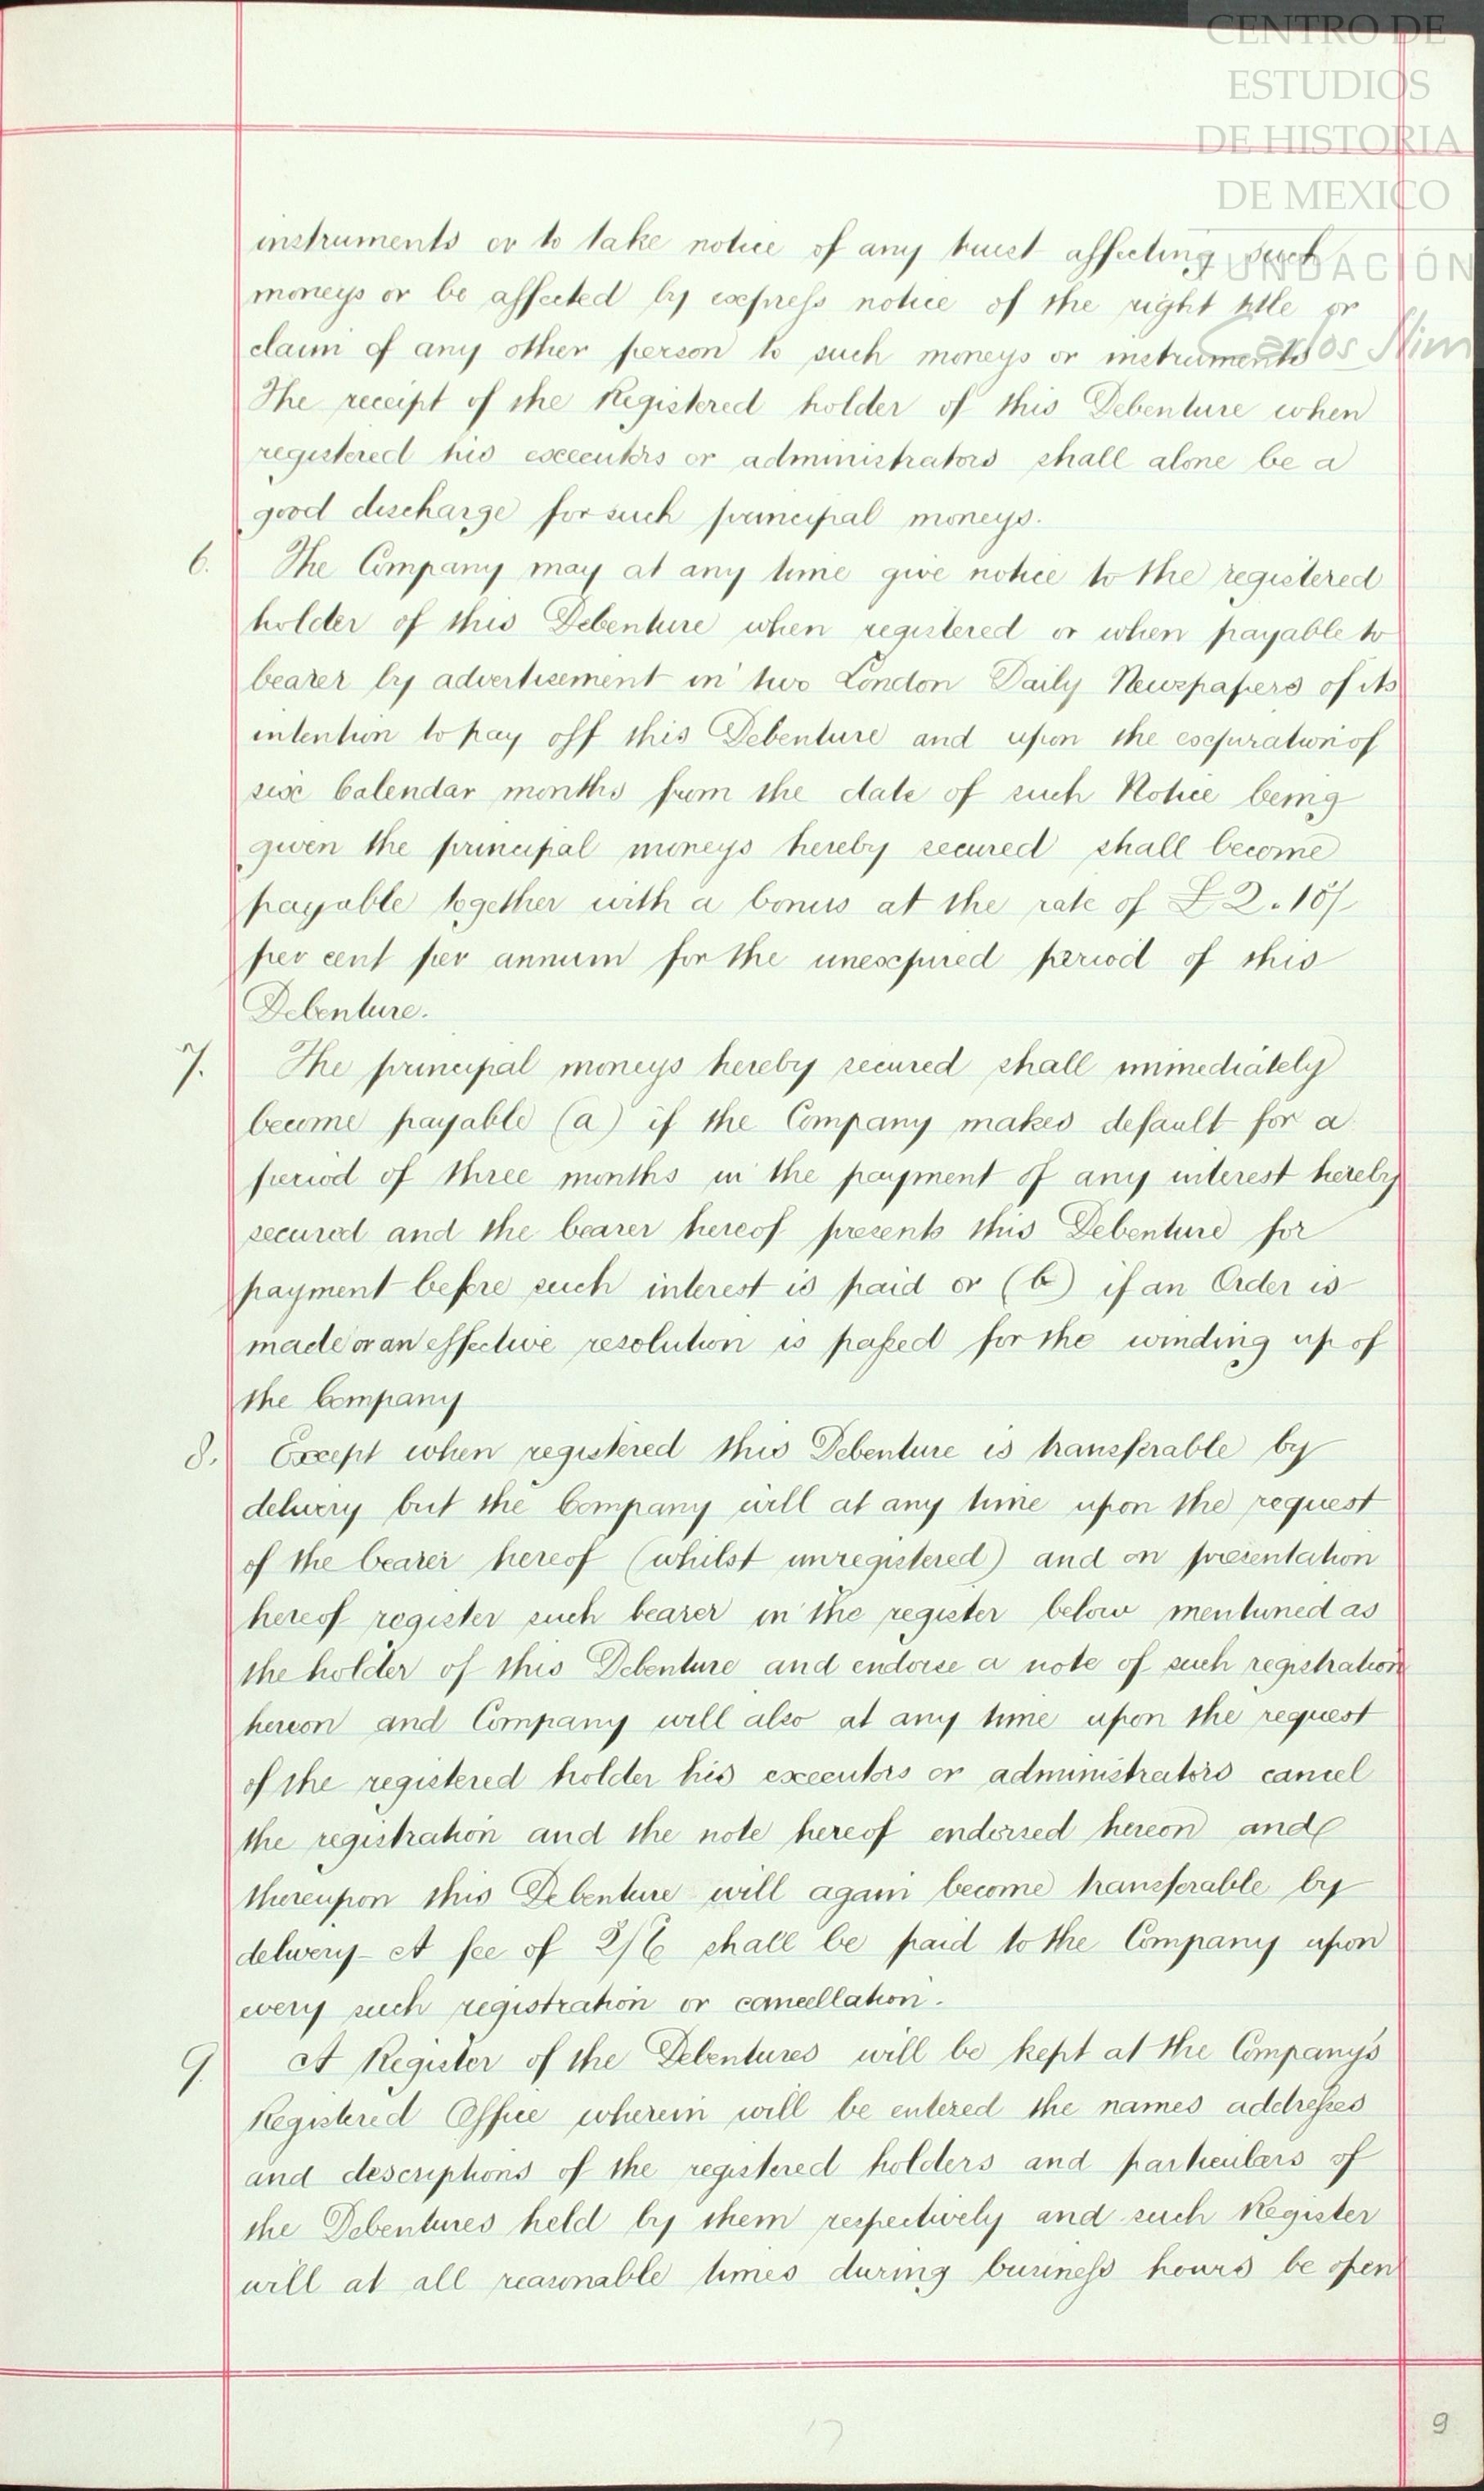 CENTRO DE
ESTUDIOS
DE HISTORIA
DE MEXICO
FUNDACIÓN
Carlos Slim
instruments or to take notice of any trust affecting such
moneys or be affected by express notice of the right title or
claim of any other person to such moneys or instruments
The receipt of the Registered holder of this Debenture when
registered his executors or administrators shall alone be a
good discharge for such principal moneys.
6. The Company may at any time give notice to the registered
holder of this Debenture when registered or when payable to
bearer by advertisement in two London Daily Newspapers of its
intention to pay off this Debenture and upon the expiration of
six Calendar months from the date of such Notice being
given the principal moneys hereby secured shall become
payable together with a bonus at the rate of £2.10/-
per cent per annum for the unexpired period of this
Debenture.
7. The principal moneys hereby secured shall immediately
become payable (a) if the Company makes default for a
period of three months in the payment of any interest hereby
secured and the bearer hereof presents this Debenture for
payment before such interest is paid or (b) if an Order is
made or an effective resolution is passed for the winding up of
the Company
8. Except when registered this Debenture is transferable by
delivery but the Company will at any time upon the request
of the bearer hereof (whilst unregistered) and on presentation
hereof register such bearer in the register below mentioned as
the holder of this Debenture and endorse a note of such registration
hereon and Company will also at any time upon the request
of the registered holder his executors or administrators cancel
the registration and the note hereof endorsed hereon and
thereupon this Debenture will again become transferable by
delivery - A fee of 2/6 shall be paid to the Company upon
every such registration or cancellation.
9. A Register of the Debentures will be kept at the Company's
Registered Office wherein will be entered the names addresses
and descriptions of the registered holders and particulars of
the Debentures held by them respectively and such Register
will at all reasonable times during business hours be open
17
9